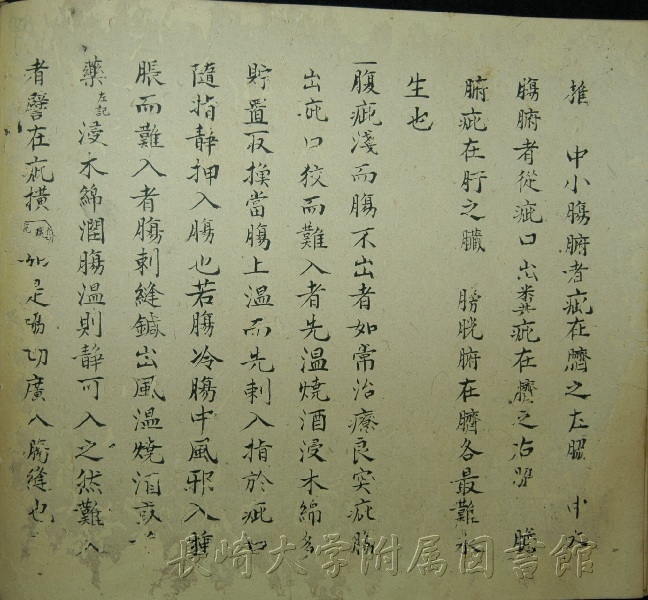 中小膓腑者疵在臍之左
膓腑者從疵口出糞疵在臍之右 膽
腑疵在肝之臓 膀胱腑在臍各最難永
生也
一腹疵淺而膓不出者如常治療良突疵膓
出疵口狡而難入者先温燒酒浸木綿
貯置取換當膓上温而先刺入指於疵口
隨指静押入膓也若膓冷膓中風邪入腫
脹而難入者膓刺縫鍼出風温燒酒或
藥左記浸木綿潤膓温則静可入之然難入
者譬在疵横 如是 切廣入膓縫也
長崎大学附属図書館